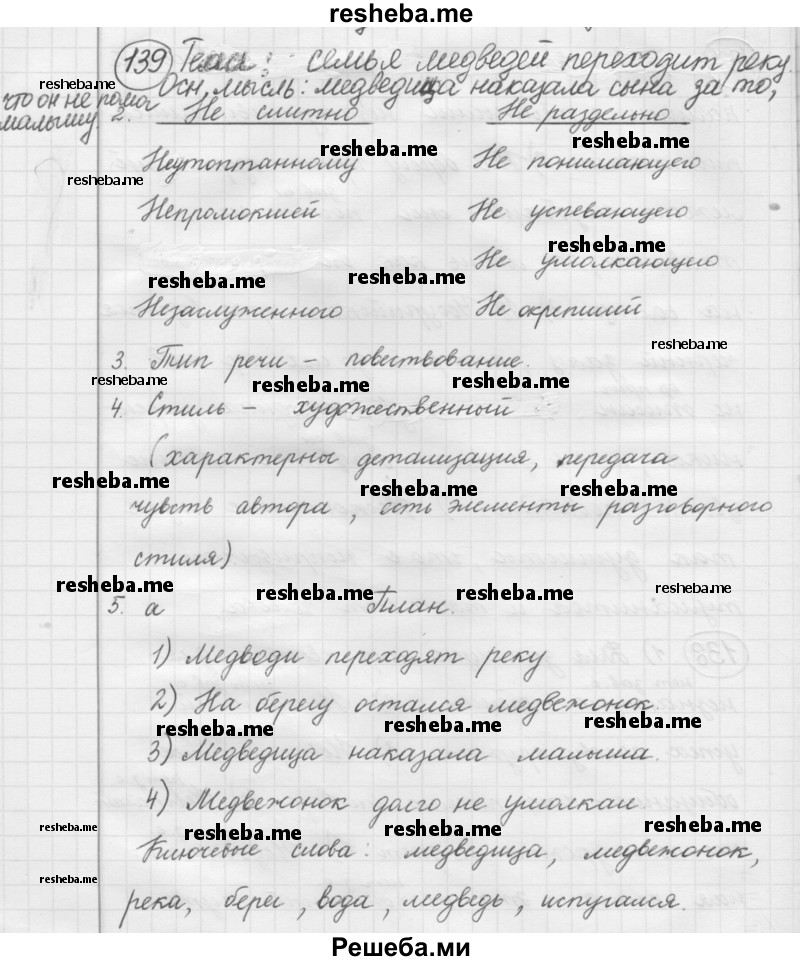 resheba.me
139 Тема: семья медведей переходит реку.
resheba.me
Осн. мысль: медведица наказала сына за то,
что он не помог
малышу.
2. Не слитно Не раздельно
resheba.me resheba.me
Неутоптанному Не понимающего
resheba.me
Непромокшей Не успевающего
resheba.me
Не умолкающего
resheba.me resheba.me
Незаслуженного Не окрепший
resheba.me
3. Тип речи - повествование.
resheba.me resheba.me resheba.me
4. Стиль - художественный
(характерны детализация, передача
resheba.me resheba.me resheba.me
чувств автора, есть элементы разговорного
стиля)
resheba.me resheba.me resheba.me resheba.me
5. а План.
1) Медведи переходят реку
2) На берегу остался медвежонок.
resheba.me resheba.me resheba.me
3) Медведица наказала малыша.
4) Медвежонок долго не умолкал
resheba.me resheba.me resheba.me resheba.me
Ключевые слова: медведица, медвежонок,
resheba.me
река, берег, вода, медведь, испугался.
Решеба.ми